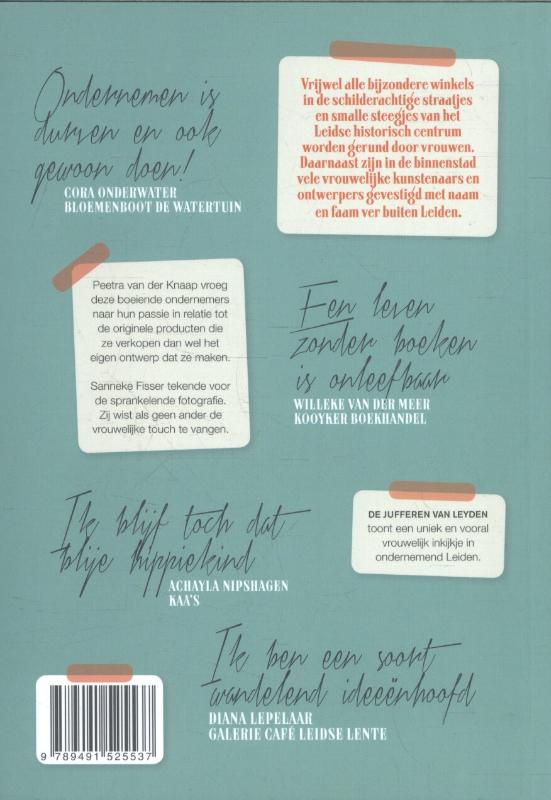 Ondernemen is
durven en ook
gewoon doen!
CORA ONDERWATER
BLOEMENBOOT DE WATERTUIN
Vrijwel alle bijzondere winkels
in de schilderachtige straatjes
en smalle steegjes van het
Leidse historisch centrum
worden gerund door vrouwen.
Daarnaast zijn in de binnenstad
vele vrouwelijke kunstenaars en
ontwerpers gevestigd met naam
en faam ver buiten Leiden.
Peetra van der Knaap vroeg
deze boeiende ondernemers
naar hun passie in relatie tot
de originele producten die
ze verkopen dan wel het
eigen ontwerp dat ze maken.
Sanneke Fisser tekende voor
de sprankelende fotografie.
Zij wist als geen ander de
vrouwelijke touch te vangen.
Een leven
zonder boeken
is onleefbaar
WILLEKE VAN DER MEER
KOOYKER BOEKHANDEL
Ik blijf toch dat
blije hippiekind
ACHAYLA NIPSHAGEN
KAA'S
DE JUFFEREN VAN LEYDEN
toont een uniek en vooral
vrouwelijk inkijkje in
ondernemend Leiden.
Ik ben een soort
wandelend ideeënhoofd
DIANA LEPELAAR
GALERIE CAFÉ LEIDSE LENTE
9 789491 525537